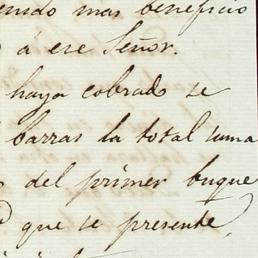 mas beneficio
á ese Señor.
haya cobrado se
barras la total suma
del primer buque
que se presente,